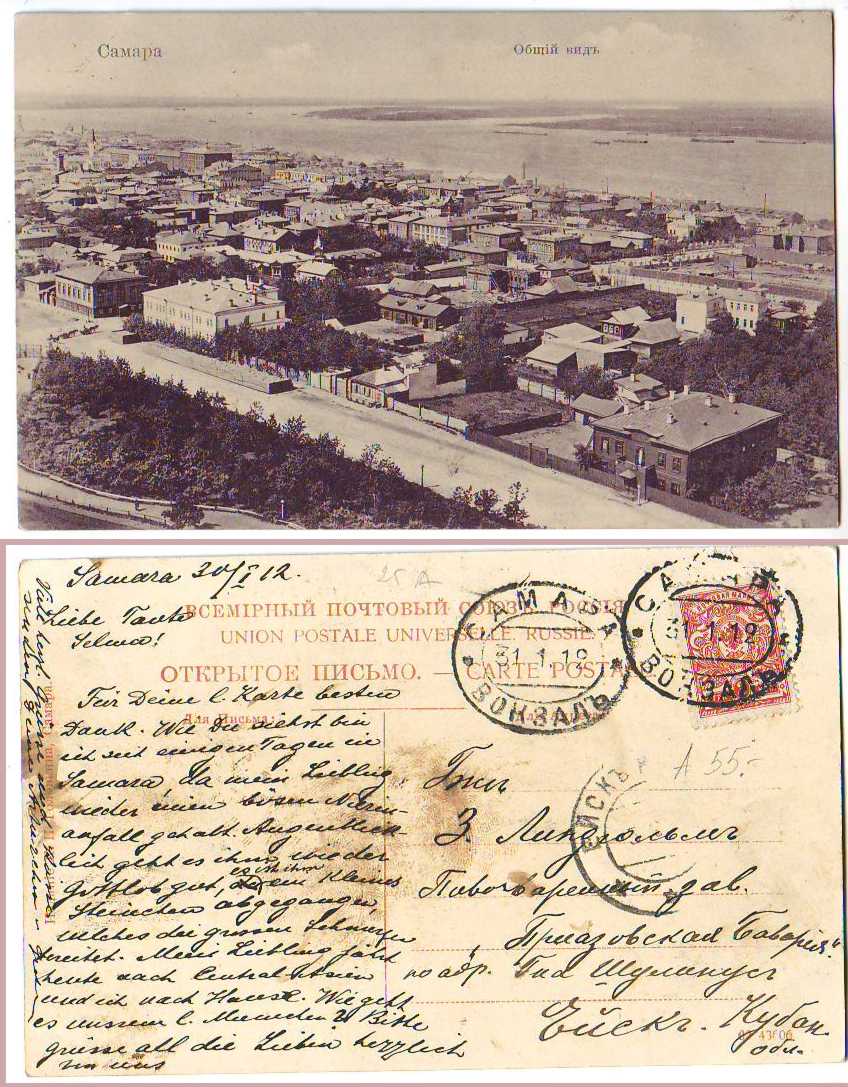 Самара
Общій видъ
Samara 30/I 12.
25 A
Liebe Tante
Selma!
ВСЕМІРНЫЙ ПОЧТОВЫЙ СОЮЗЪ. РОССІЯ.
UNION POSTALE UNIVERSELLE. RUSSIE.
ОТКРЫТОЕ ПИСЬМО. — CARTE POSTALE
Для письма:
САМАРА
31 1 12
ВОКЗАЛЪ
САМАРА
31 1 12
ВОКЗАЛЪ
Für Deine l. Karte besten
Dank. Wie Du siehst bin
ich seit einigen Tagen in
Samara da mein Liebling
wieder einen bösen Nieren-
anfall gehabt. Augenblick-
lich geht es ihm wieder
Gottlob gut, es ist ihm ein kleines
Steinchen abgegangen,
welches die grossen Schmerzen
bereitet. Mein Liebling fährt
heute nach Central Asien
und ich nach Hause. Wie geht
es unserem l. Mumchen? Bitte
grüsse all die Lieben herzlich
von uns
Viele herzl. Grüsse
Самара
ЕЙСКЪ
A 55.-
З. Линдгольмъ
Пивоваренный зав.
"Приазовская Баварія"
по адр. Гна Шулинусъ
Ейскъ. Кубан.
обл.
43606